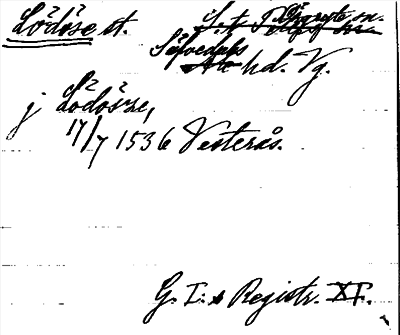 Lödöse st.
Sävedals
hd. Vg.
j Lödösze,
17/7 1536 Vesterås.
G. I:s Registr. XI.